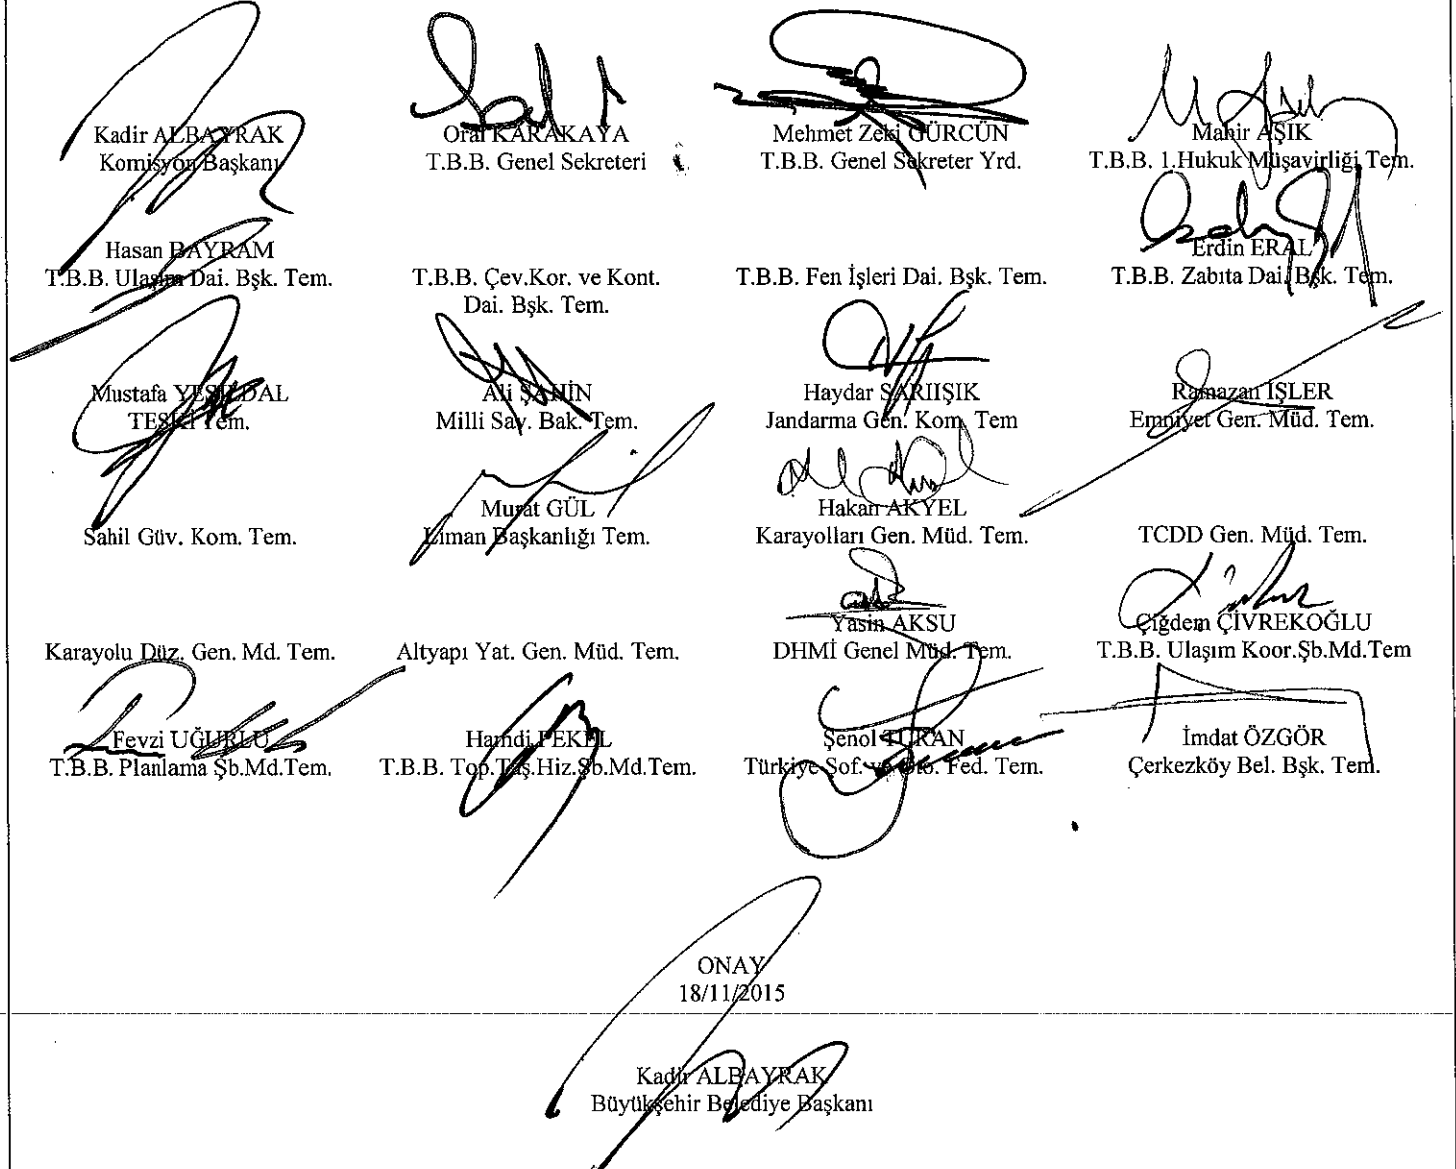 Kadir ALBAYRAK
Komisyon Başkanı
Oral KARAKAYA
T.B.B. Genel Sekreteri
Mehmet Zeki GÜRCÜN
T.B.B. Genel Sekreter Yrd.
Mahir AŞIK
T.B.B. 1.Hukuk Müşavirliği Tem.
Hasan BAYRAM
T.B.B. Ulaşım Dai. Bşk. Tem.
T.B.B. Çev.Kor. ve Kont.
Dai. Bşk. Tem.
T.B.B. Fen İşleri Dai. Bşk. Tem.
Erdin ERAL
T.B.B. Zabıta Dai. Bşk. Tem.
Mustafa YEŞİLDAL
TESKİ Tem.
Ali ŞAHİN
Milli Sav. Bak. Tem.
Haydar SARIIŞIK
Jandarma Gen. Kom. Tem
Ramazan İŞLER
Emniyet Gen. Müd. Tem.
Sahil Güv. Kom. Tem.
Murat GÜL
Liman Başkanlığı Tem.
Hakan AKYEL
Karayolları Gen. Müd. Tem.
TCDD Gen. Müd. Tem.
Karayolu Düz. Gen. Md. Tem.
Altyapı Yat. Gen. Müd. Tem.
Yasin AKSU
DHMİ Genel Müd. Tem.
Çiğdem ÇİVREKOĞLU
T.B.B. Ulaşım Koor.Şb.Md.Tem
Fevzi UĞURLU
T.B.B. Planlama Şb.Md.Tem.
Hamdi PEKEL
T.B.B. Top.Taş.Hiz.Şb.Md.Tem.
Şenol TURAN
Türkiye Şof. ve Oto. Fed. Tem.
İmdat ÖZGÖR
Çerkezköy Bel. Bşk. Tem.
ONAY
18/11/2015
Kadir ALBAYRAK
Büyükşehir Belediye Başkanı